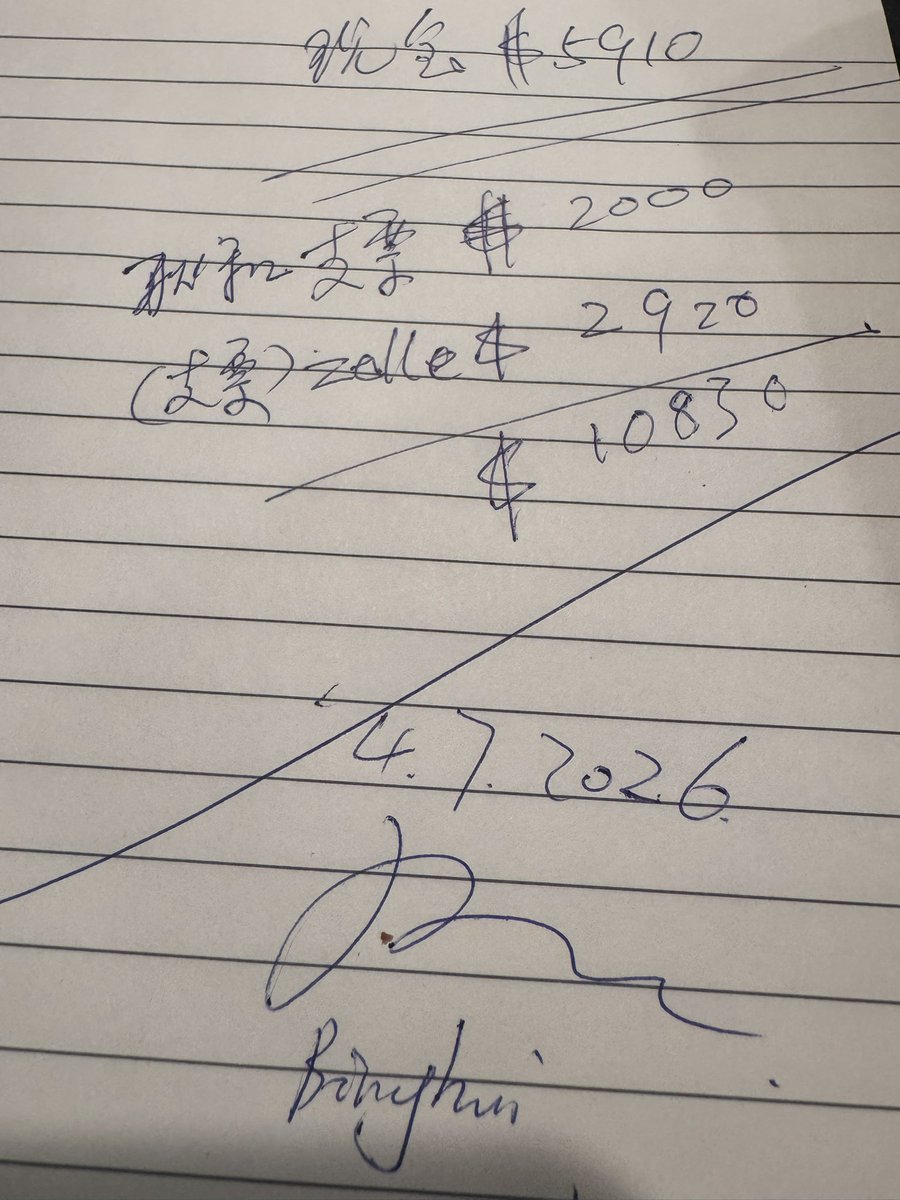 现金 $5910
支票 $ 2000
(支票) zelle $ 2920
$ 10830
4.7.2026
Binghui